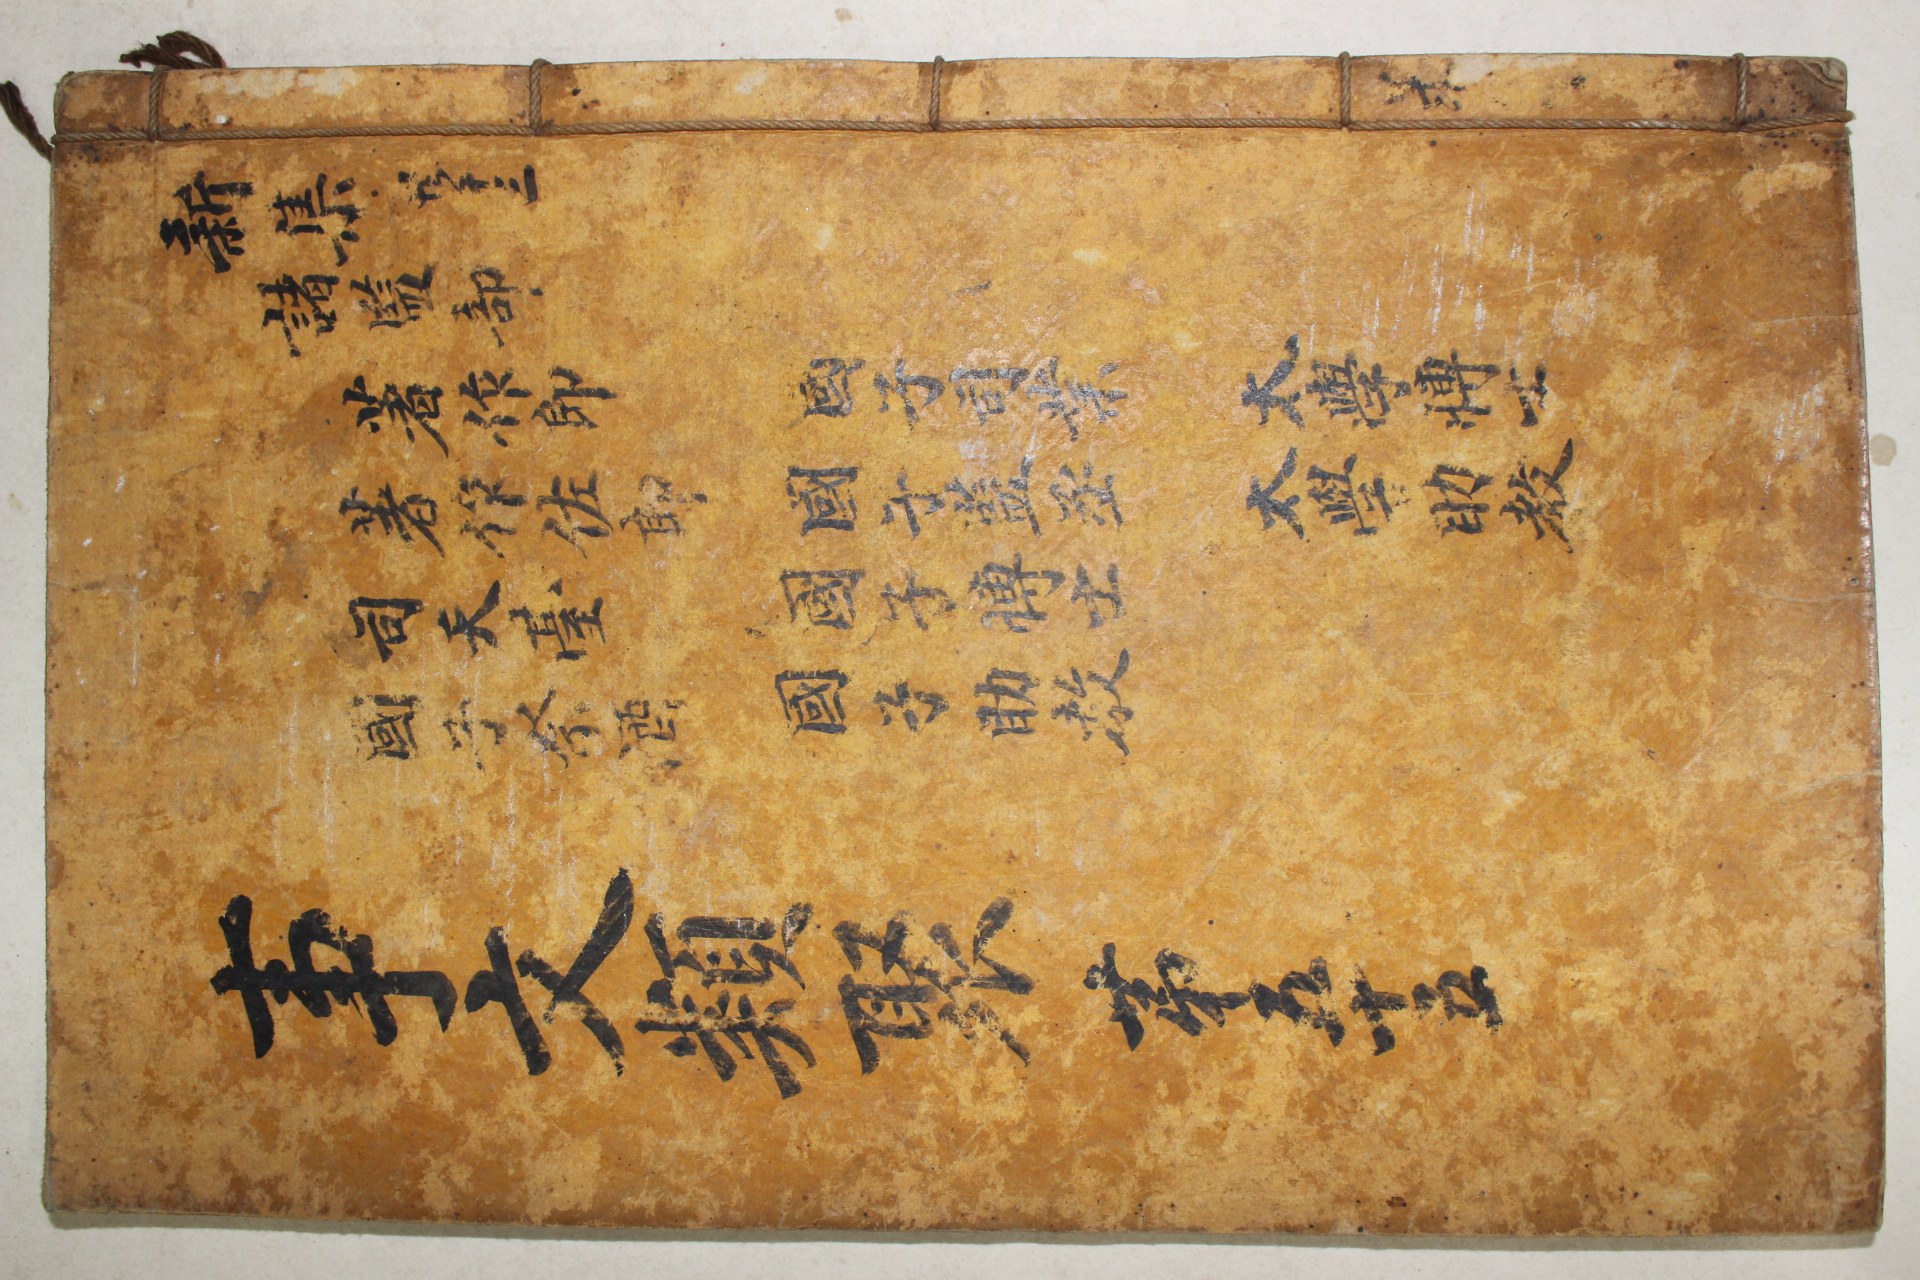 新集
諸監部
著作郎
著作佐郎
司天臺
國子祭酒
國子司業
國子監丞
國子博士
國子助教
太學博士
太學助教
事文類聚 第五十五